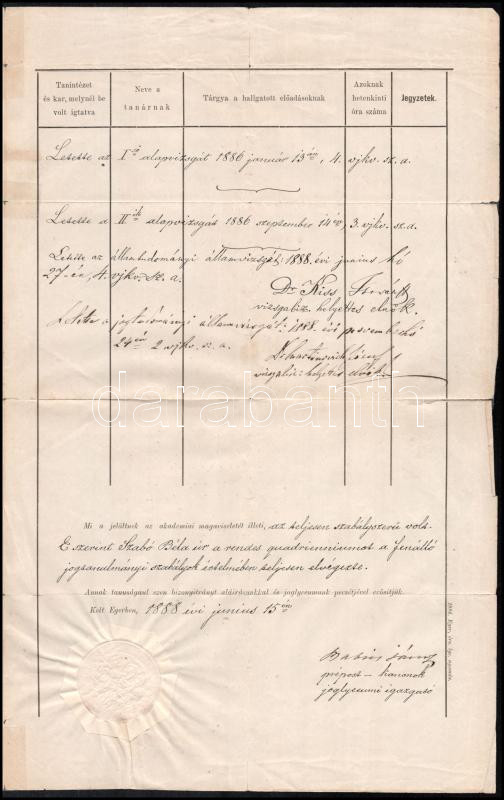 Tanintézet és kar, melynél be volt igtatva
Neve a tanárnak
Tárgya a hallgatott előadásoknak
Azoknak hetenkinti óra száma
Jegyzetek.
Letette az I-ső alapvizsgát 1886 január 13án, 4. vjkv. sz. a.
Letette a II-ik alapvizsgát 1886 szeptember 14én, 3. vjkv. sz. a.
Letette az államtudományi államvizsgát: 1888. évi junius hó
27-én, 4. vjkv. sz. a.
Dr Kiss István
vizsgabiz. helyettes elnök.
Letette a jogtudományi államvizsgát: 1888. évi november hó
24én 2 vjkv. sz. a.
helyettes elnök
darabanth
Mi a jelöltnek az akademiai magaviseletét illeti, az teljesen szabályszerü volt.
E szerint Szabó Béla úr a rendes quadrienniumot a fenálló
jogtanulmányi szabályok értelmében teljesen elvégezte.
Annak tanuságaul ezen bizonyitványt aláirásunkkal és joglyceumunk pecsétjével erősitjük.
Kelt Egerben, 1888 évi junius 15én
prépost – kanonok
joglyceumi igazgató